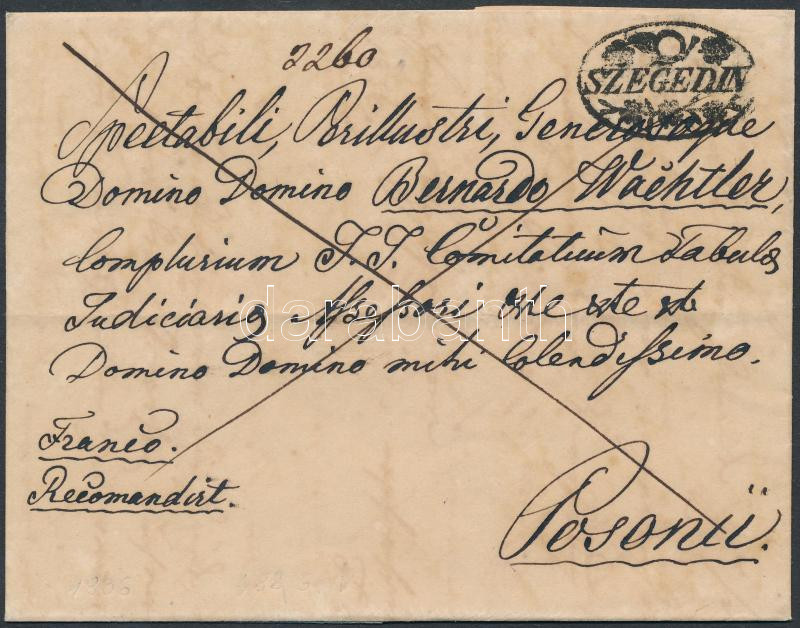 2260
SZEGEDIN
Spectabili, Perillustri, Generosoque
Domino Domino Bernardo Wachtler,
Complurium I. I. Comitatuum Tabulæ
Judiciariæ Assessori
Domino Domino mihi Colendissimo.
Franco.
Recomandirt.
Posonii.
darabanth
1836